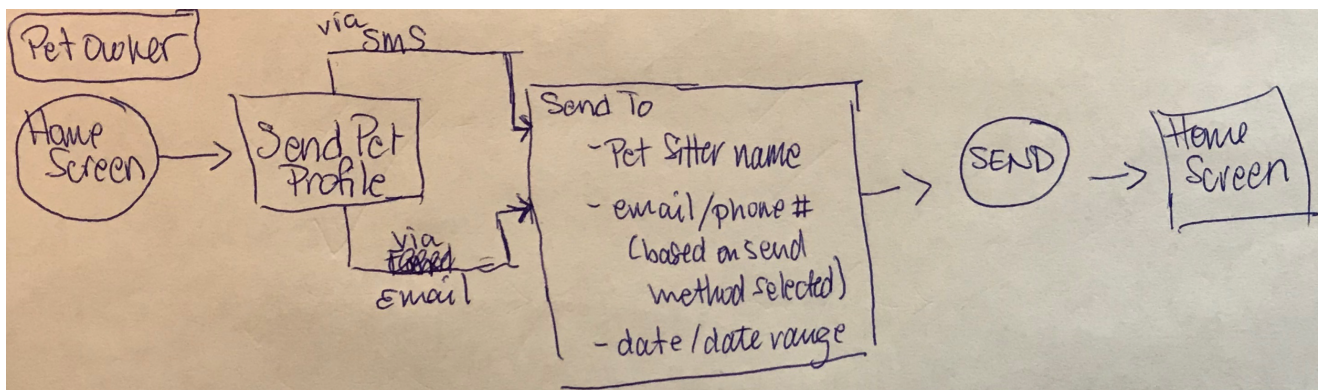 Pet Owner
Home
Screen
Send Pet
Profile
via
SMS
via
Email
Send To
- Pet Sitter name
- email/phone #
(based on send
method selected)
- date/date range
SEND
Home
Screen